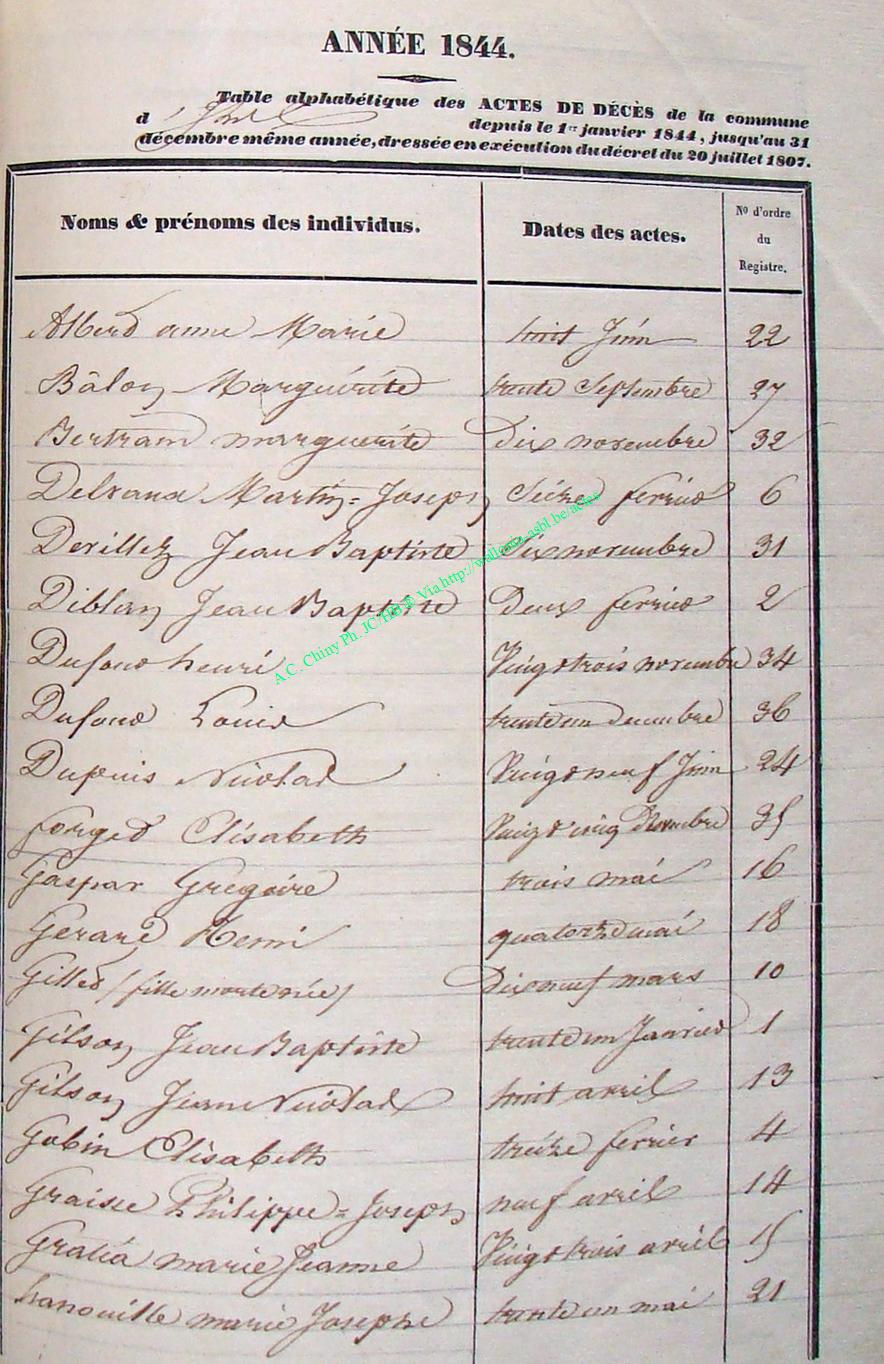 ANNÉE 1844.
Table alphabétique des ACTES DE DÉCÈS de la commune
d depuis le 1er janvier 1844, jusqu'au 31
décembre même année, dressée en exécution du décret du 20 juillet 1807.
Noms & prénoms des individus. Dates des actes. No d'ordre du Registre.
Alberd anne Marie huit Juin 22
Bâlon Marguérite trente Septembre 27
Bertrand marguerite Dix novembre 32
Martin=Joseph Seize fevrier 6
Devillez Jean Baptiste Six novembre 31
Diblan Jean Baptiste Deux fevrier 2
Dufour henri Vingt trois novembre 34
Dufour Louis trente un decembre 36
Dupuis Nicolas Vingt neuf Juin 24
forget Elisabeth Vingt cinq 35
Gaspar Grégoire trois mai 16
Gerard Remi quatorze mai 18
Gilles (fille morte née) Dix neuf mars 10
Gilson Jean Baptiste trente un Janvier 1
Gilson Jean Nicolas huit avril 13
Gobin Elisabeth treize fevrier 4
Graisse Philippe=Joseph neuf avril 14
Gratia marie Jeanne Vingt trois avril 15
hanouille marie Josephe trente un mai 21
A.C. Chiny Ph. JC/HB ® Via http://wallonia-asbl.be/actes